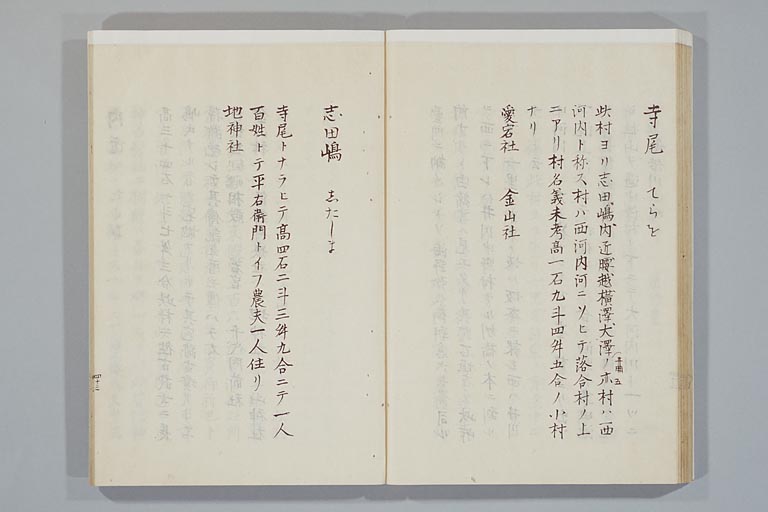 寺尾 てらを
此村ヨリ志田嶋内近腰越横澤大澤ノ六村ハ西
河内ト称ス村ハ西河内河ニソヒテ落合村ノ上
ニアリ村名義未考高一石九斗四升五合ノ小村
ナリ
愛宕社 金山社
志田嶋 志たしま
寺尾トナラヒテ高四石二斗三升九合ニテ一人
百姓トテ平右衛門トイフ農夫一人住リ
地神社